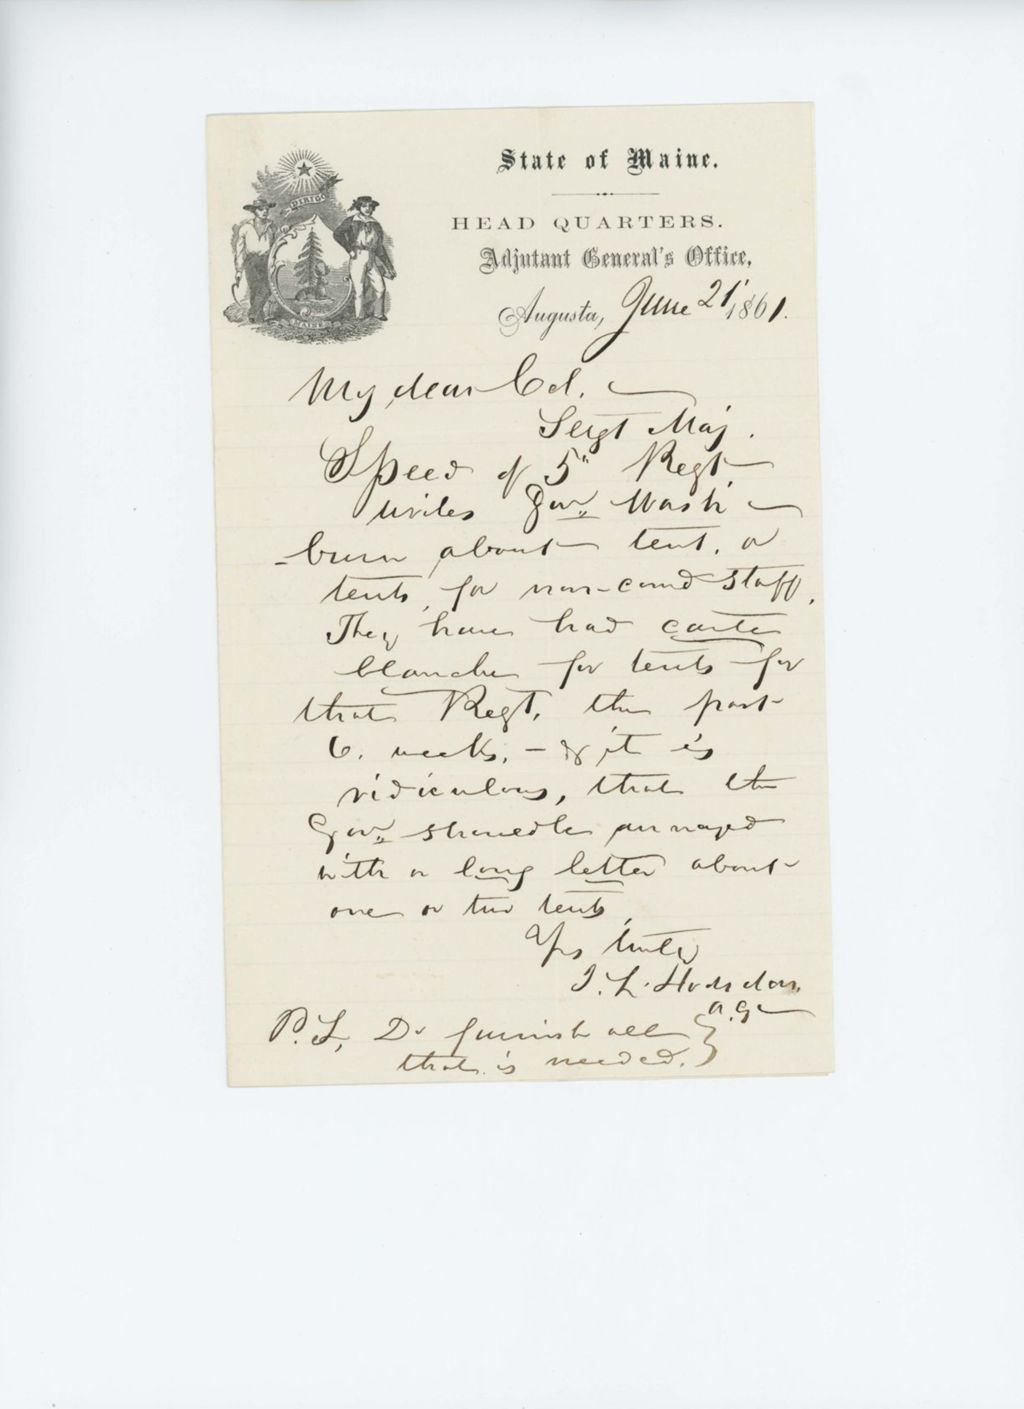 DIRIGO
MAINE
State of Maine.
HEAD QUARTERS.
Adjutant General's Office,
Augusta, June 21' 1861.
My dear Col.
Sergt Maj.
Speed of 5" Regt
writes Gov. Wash
-burn about tent, or
tents, for non-comd staff.
They have had carte
blanche for tents for
that Regt, the past
6. weeks, - & it is
ridiculous, that the
Gov. should be annoyed
with a long letter about
one or two tents,
Yrs truly
J. L. Hodsdon,
A.G.
P.S, Do furnish all
that is needed.